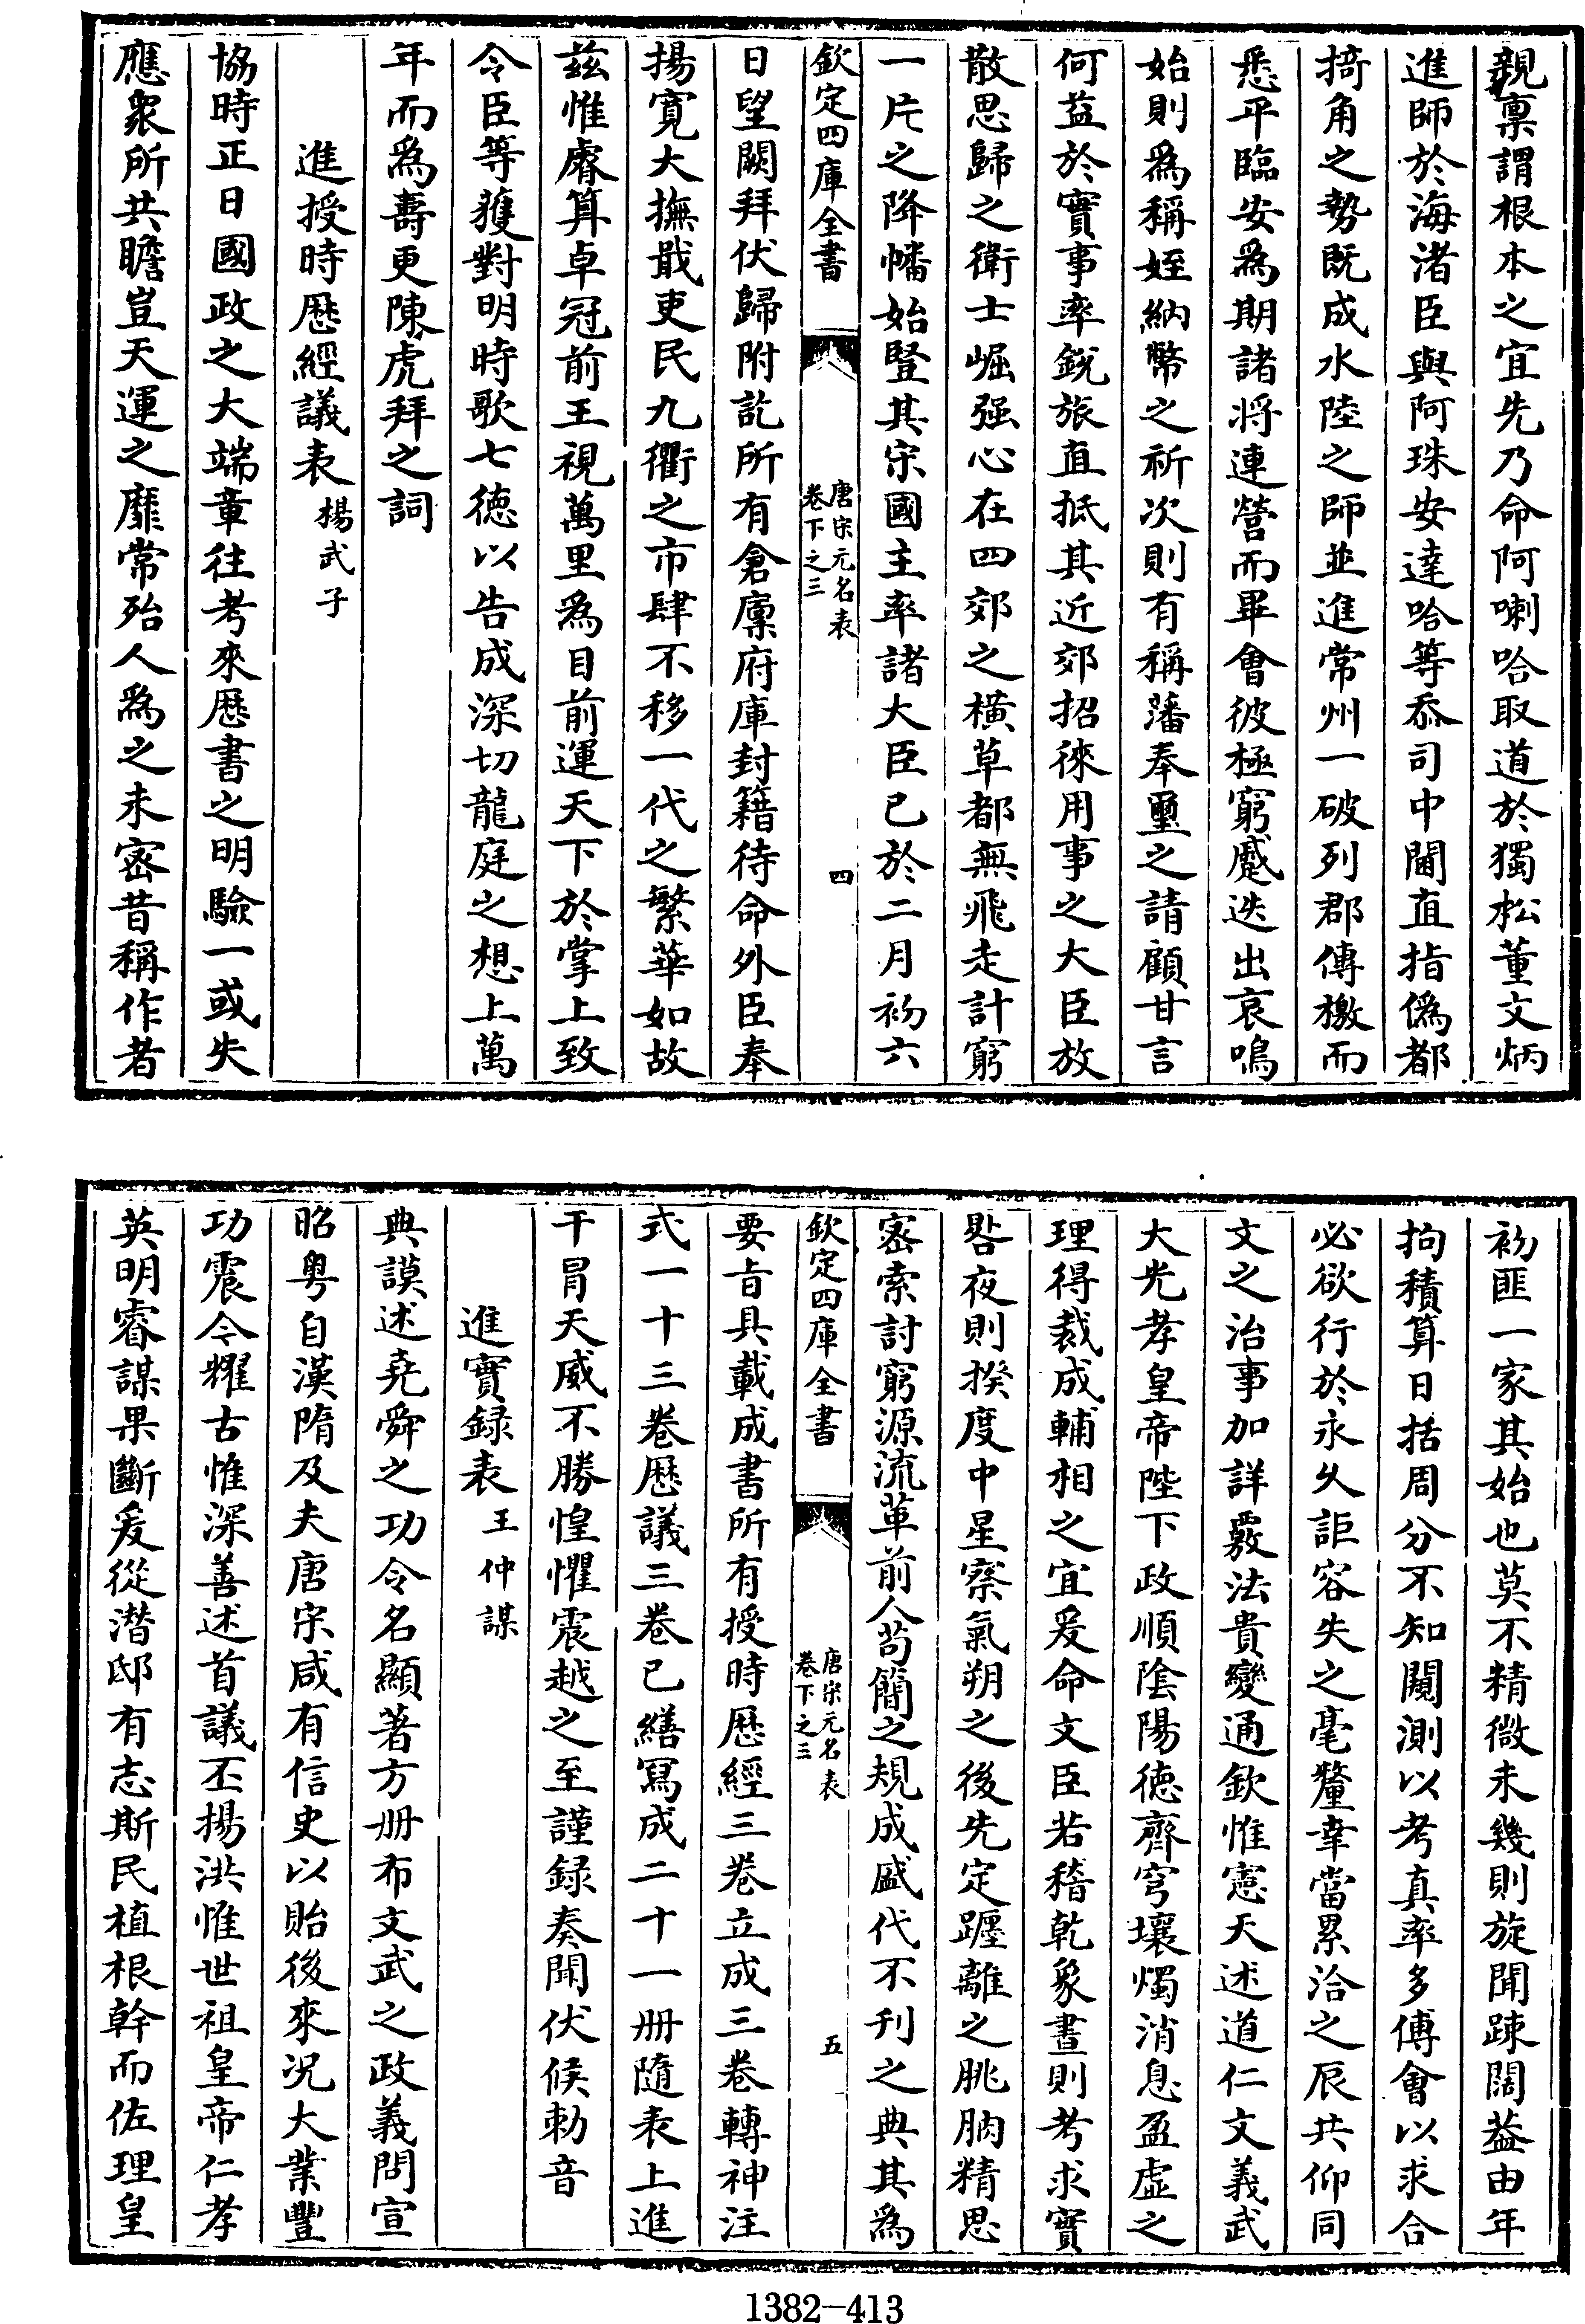 親禀謂根本之宜先乃命阿喇哈取道於獨松董文炳
進師於海渚臣與阿珠安達哈等忝司中閫直指僞都
掎角之勢既成水陸之師並進常州一破列郡傳檄而
悉平臨安爲期諸将連營而畢會彼極窮蹙迭出哀鳴
始則爲稱姪納幣之祈次則有稱藩奉璽之請顧甘言
何益於實事率銳旅直抵其近郊招徠用事之大臣放
散思歸之衛士崛强心在四郊之橫草都無飛走計窮
一片之降幡始豎其宋國主率諸大臣已於二月初六
欽定四庫全書
唐宋元名表
卷下之三
四
日望闕拜伏歸附訖所有倉廩府庫封籍待命外臣奉
揚寛大撫戢吏民九衢之市肆不移一代之繁華如故
兹惟睿算卓冠前王視萬里爲目前運天下於掌上致
令臣等獲對明時歌七德以告成深切龍庭之想上萬
年而爲壽更陳虎拜之詞
進授時厯經議表 楊武子
協時正日國政之大端章往考來厯書之明驗一或失
應衆所共瞻豈天運之靡常殆人爲之未密昔稱作者
初匪一家其始也莫不精微未幾則旋聞踈闊葢由年
拘積算日括周分不知闚測以考真率多傅會以求合
必欲行於永久詎容失之毫釐幸當累洽之辰共仰同
文之治事加詳覈法貴變通欽惟憲天述道仁文義武
大光孝皇帝陛下政順陰陽德齊穹壤燭消息盈虛之
理得裁成輔相之宜爰命文臣若稽乾象晝則考求實
晷夜則揆度中星察氣朔之後先定躔離之朓朒精思
密索討窮源流革前人苟簡之規成盛代不刋之典其爲
欽定四庫全書
唐宋元名表
卷下之三
五
要旨具載成書所有授時厯經三卷立成三卷轉神注
式一十三卷厯議三卷已繕寫成二十一册隨表上進
干冒天威不勝惶懼震越之至謹録奏聞伏候勅音
進實録表 王仲謀
典謨述堯舜之功令名顯著方册布文武之政義問宣
昭粤自漢隋及夫唐宋咸有信史以貽後來况大業豐
功震今耀古惟深善述首議丕揚洪惟世祖皇帝仁孝
英明睿謀果斷爰從潜邸有志斯民植根幹而佐理皇
1382-413